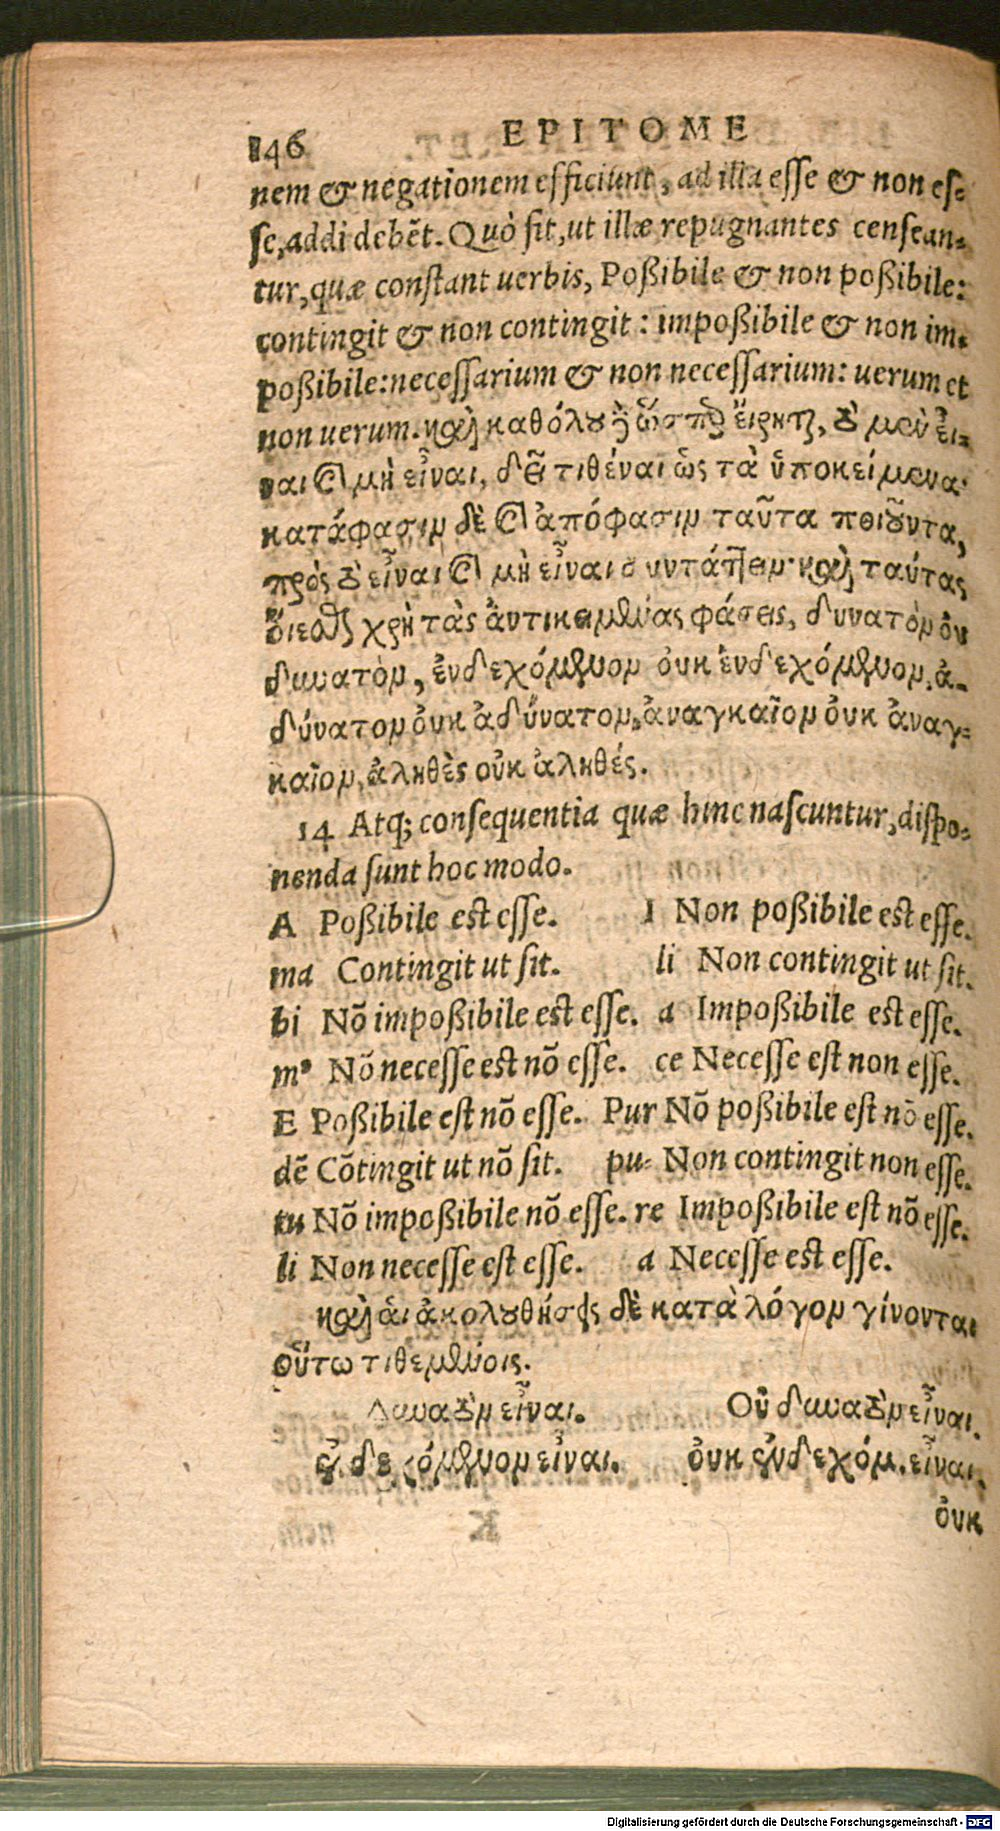 146 EPITOME
nem & negationem efficiunt, ad illa esse & non es-
se, addi debẽt. Quò fit, ut illæ repugnantes censean-
tur, quæ constant uerbis, Poßibile & non poßibile:
contingit & non contingit: impoßibile & non im-
poßibile: necessarium & non necessarium: uerum et
non uerum. καὶ καθόλου ὥσπερ εἴρηται, τὸ μὲν εἶ-
ναι καὶ μὴ εἶναι, δεῖ τιθέναι ὡς τὰ ὑποκείμενα·
κατάφασιν δὲ καὶ ἀπόφασιν ταῦτα ποιοῦντα,
πρὸς τὸ εἶναι καὶ μὴ εἶναι συντάττειν· καὶ ταύτας
οἴεσθαι χρὴ τὰς ἀντικειμένας φάσεις, δυνατὸν οὐ
δυνατὸν, ἐνδεχόμενον οὐκ ἐνδεχόμενον, ἀ-
δύνατον οὐκ ἀδύνατον, ἀναγκαῖον οὐκ ἀναγ-
καῖον, ἀληθὲς οὐκ ἀληθές.
14 Atq; consequentia quæ hinc nascuntur, dispo-
nenda sunt hoc modo.
A Poßibile est esse. I Non poßibile est esse.
ma Contingit ut sit. li Non contingit ut sit.
bi Nõ impoßibile est esse. a Impoßibile est esse.
mº Nõ necesse est nõ esse. ce Necesse est non esse.
E Poßibile est nõ esse. Pur Nõ poßibile est nõ esse.
dẽ Cõtingit ut nõ sit. pu- Non contingit non esse.
tu Nõ impoßibile nõ esse. re Impoßibile est nõ esse.
li Non necesse est esse. a Necesse est esse.
καὶ αἱ ἀκολουθήσεις δὲ κατὰ λόγον γίνονται
οὕτω τιθεμένοις.
Δυνατὸν εἶναι. Οὐ δυνατὸν εἶναι.
ἐνδεχόμενον εἶναι. οὐκ ἐνδεχόμ. εἶναι.
οὐκ
Digitalisierung gefördert durch die Deutsche Forschungsgemeinschaft - DFG